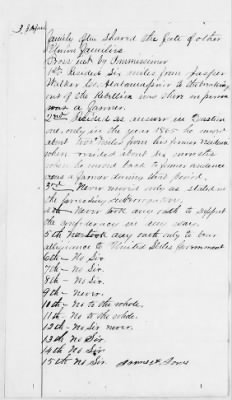 family also shared the fate of other
Union families
Cross ex't by Commissioner
1st Resided six miles from Jasper
Walker Co. Alabama prior to the breaking
out of the Rebellion was there in person
was a farmer.
2nd Resided as answer in Question
one, only in the year 1865 he moved
about miles from his former residence
when resided about six months
when he moved back to former residence
was a farmer during that period.
3rd Never moved only as stated in
the preceding interrogatory
4th Never took any oath to support
the confederacy in any way.
5th Never took any oath only to bear
allegiance to United States Government
6th - No Sir.
7th - No Sir.
8th - No Sir.
9th - Never.
10th - No to the whole.
11th - No to the whole.
12th - No Sir never.
13th No Sir
14th No Sir
15th No Sir.